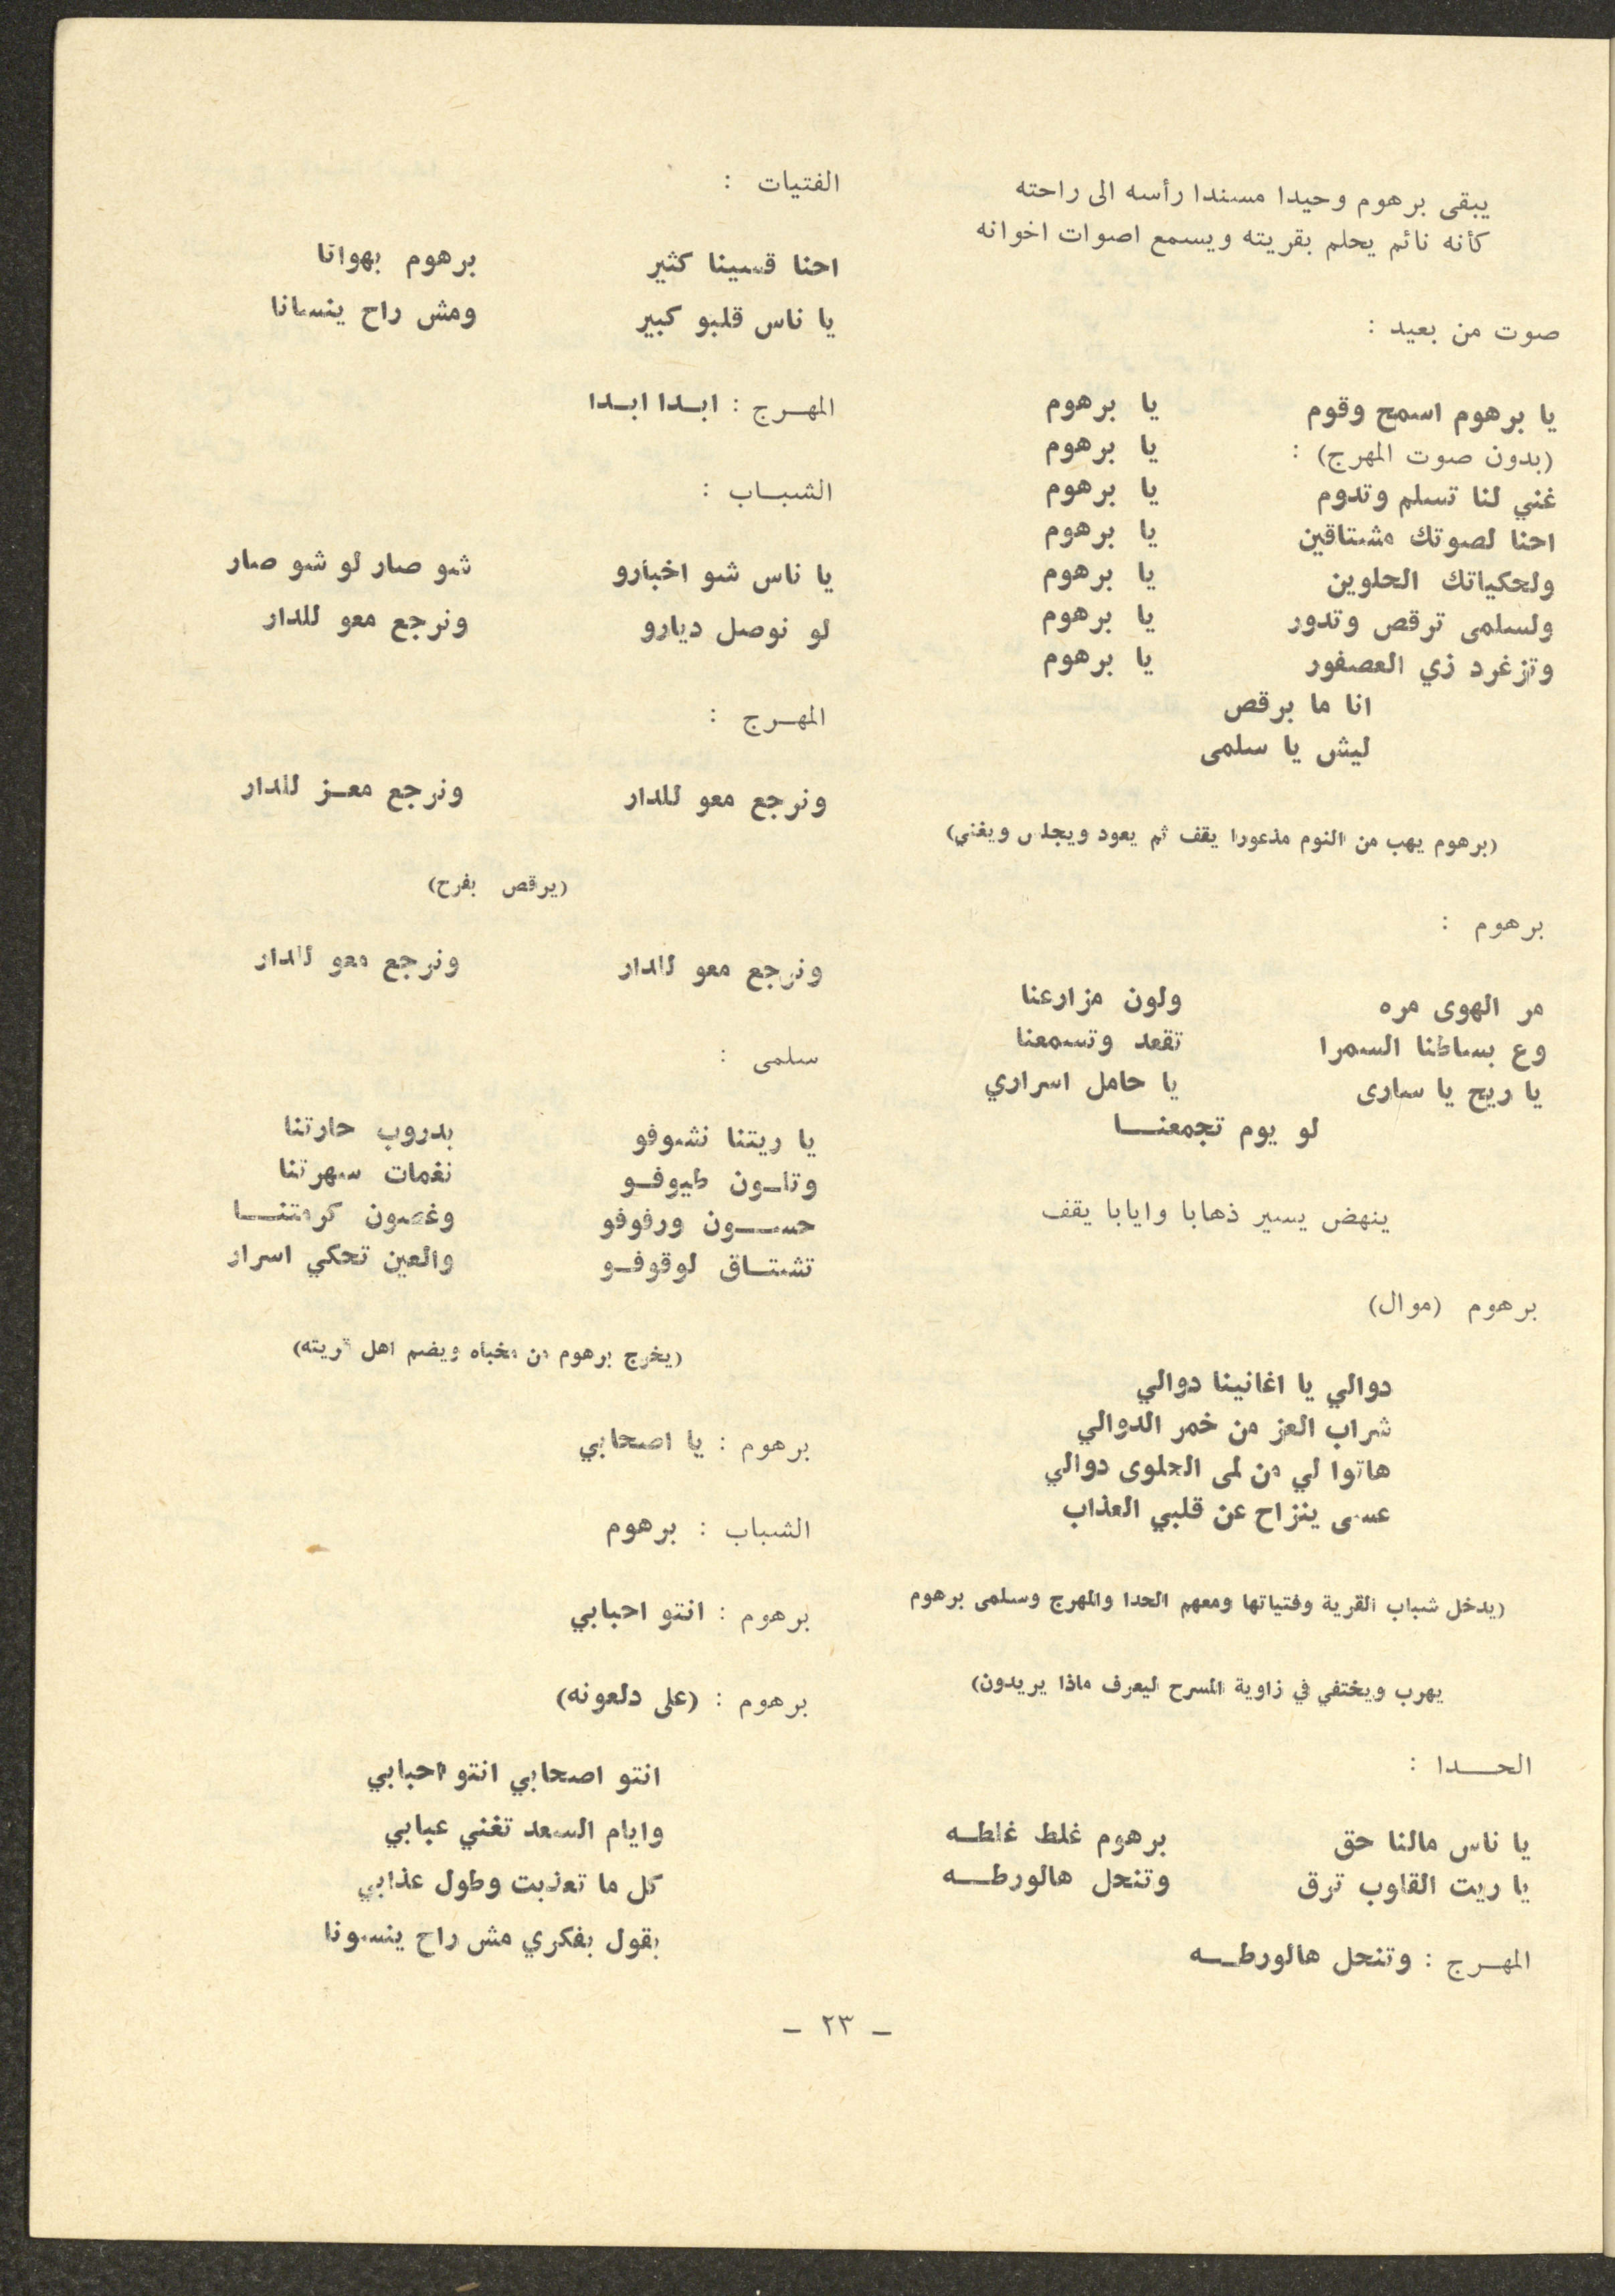 يبقى برهوم وحيدا مسندا رأسه الى راحته
كأنه نائم يحلم بقريته ويسمع اصوات اخوانه
صوت من بعيد :
يا برهوم اسمح وقوم يا برهوم
(بدون صوت المهرج) : يا برهوم
غني لنا تسلم وتدوم يا برهوم
احنا لصوتك مشتاقين يا برهوم
ولحكياتك الحلوين يا برهوم
ولسلمى ترقص وتدور يا برهوم
وتزغرد زي العصفور يا برهوم
انا ما برقص
ليش يا سلمى
(برهوم يهب من النوم مذعورا يقف ثم يعود ويجلس ويغني)
برهوم :
مر الهوى مره ولون مزارعنا
وع بساطنا السمرا تقعد وتسمعنا
يا ريح يا سارى يا حامل اسراري
لو يوم تجمعنــا
ينهض يسير ذهابا وايابا يقف
برهوم (موال)
دوالي يا اغانينا دوالي
شراب العز من خمر الدوالي
هاتوا لي من لمى الحلوى دوالي
عسى ينزاح عن قلبي العذاب
(يدخل شباب القرية وفتياتها ومعهم الحدا والمهرج وسلمى برهوم
يهرب ويختفي في زاوية المسرح ليعرف ماذا يريدون)
الحــدا :
يا ناس مالنا حق برهوم غلط غلطــه
يا ريت القلوب ترق وتنحل هالورطــه
المهــرج : وتنحل هالورطــه
الفتيات :
احنا قسينا كثير برهوم بهوانا
يا ناس قلبو كبير ومش راح ينسانا
المهــرج : ابــدا ابــدا
الشبــاب :
يا ناس شو اخبارو شو صار لو شو صار
لو نوصل ديارو ونرجع معو للدار
المهــرج :
ونرجع معو للدار ونرجع معــز للدار
(يرقص بفرح)
ونرجع معو للدار ونرجع معو للدار
سلمى :
يا ريتنا نشوفو بدروب حارتنا
وتلــون طيوفــو نغمات سهرتنا
حســون ورفوفو وغصون كرمتنــا
تشتــاق لوقوفــو والعين تحكي اسرار
(يخرج برهوم من مخباه ويضم اهل قريته)
برهوم : يا اصحابي
الشباب : برهوم
برهوم : انتو احبابي
برهوم : (على دلعونه)
انتو اصحابي انتو احبابي
وايام السعد تغني عبابي
كل ما تعذبت وطول عذابي
بقول بفكري مش راح ينسونا
– ٢٣ –